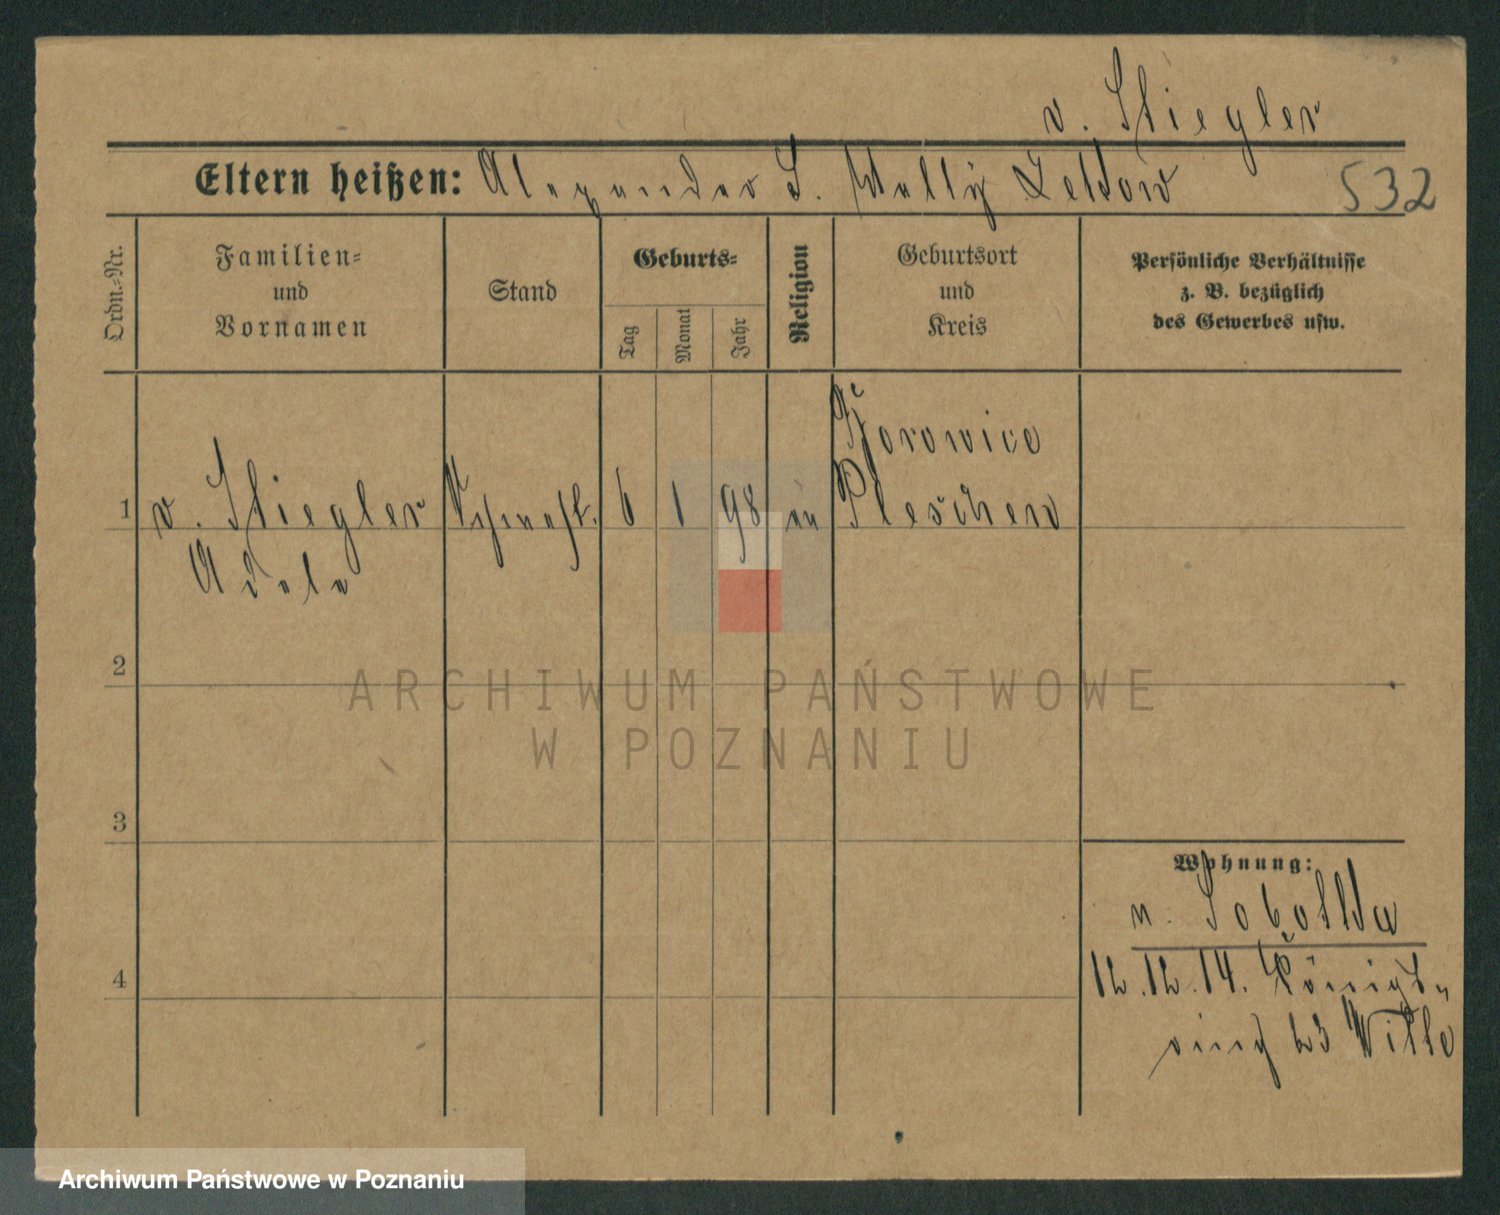 v. Stiegler
Eltern heißen: Alexander S. Wally Zettow
532
Ordn.-Nr.
Familien-
und
Vornamen
Stand
Geburts-
Tag
Monat
Jahr
Religion
Geburtsort
und
Kreis
Persönliche Verhältnisse
z. B. bezüglich
des Gewerbes usw.
1
v. Stiegler
Adele
6
1
98
ev
Pleschen
2
3
4
Wohnung:
n. Sobotka
12.12.14. Königs-
ring 23 Witte
ARCHIWUM PAŃSTWOWE
W POZNANIU
Archiwum Państwowe w Poznaniu